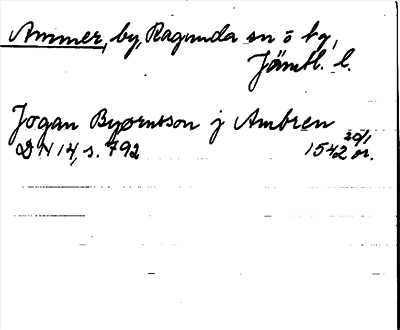 Ammer, by, Ragunda sn o tg,
Jämtl. l.
Jogan Byørnsson j Ambren
DN 14, s. 792 1542 20/1 or.